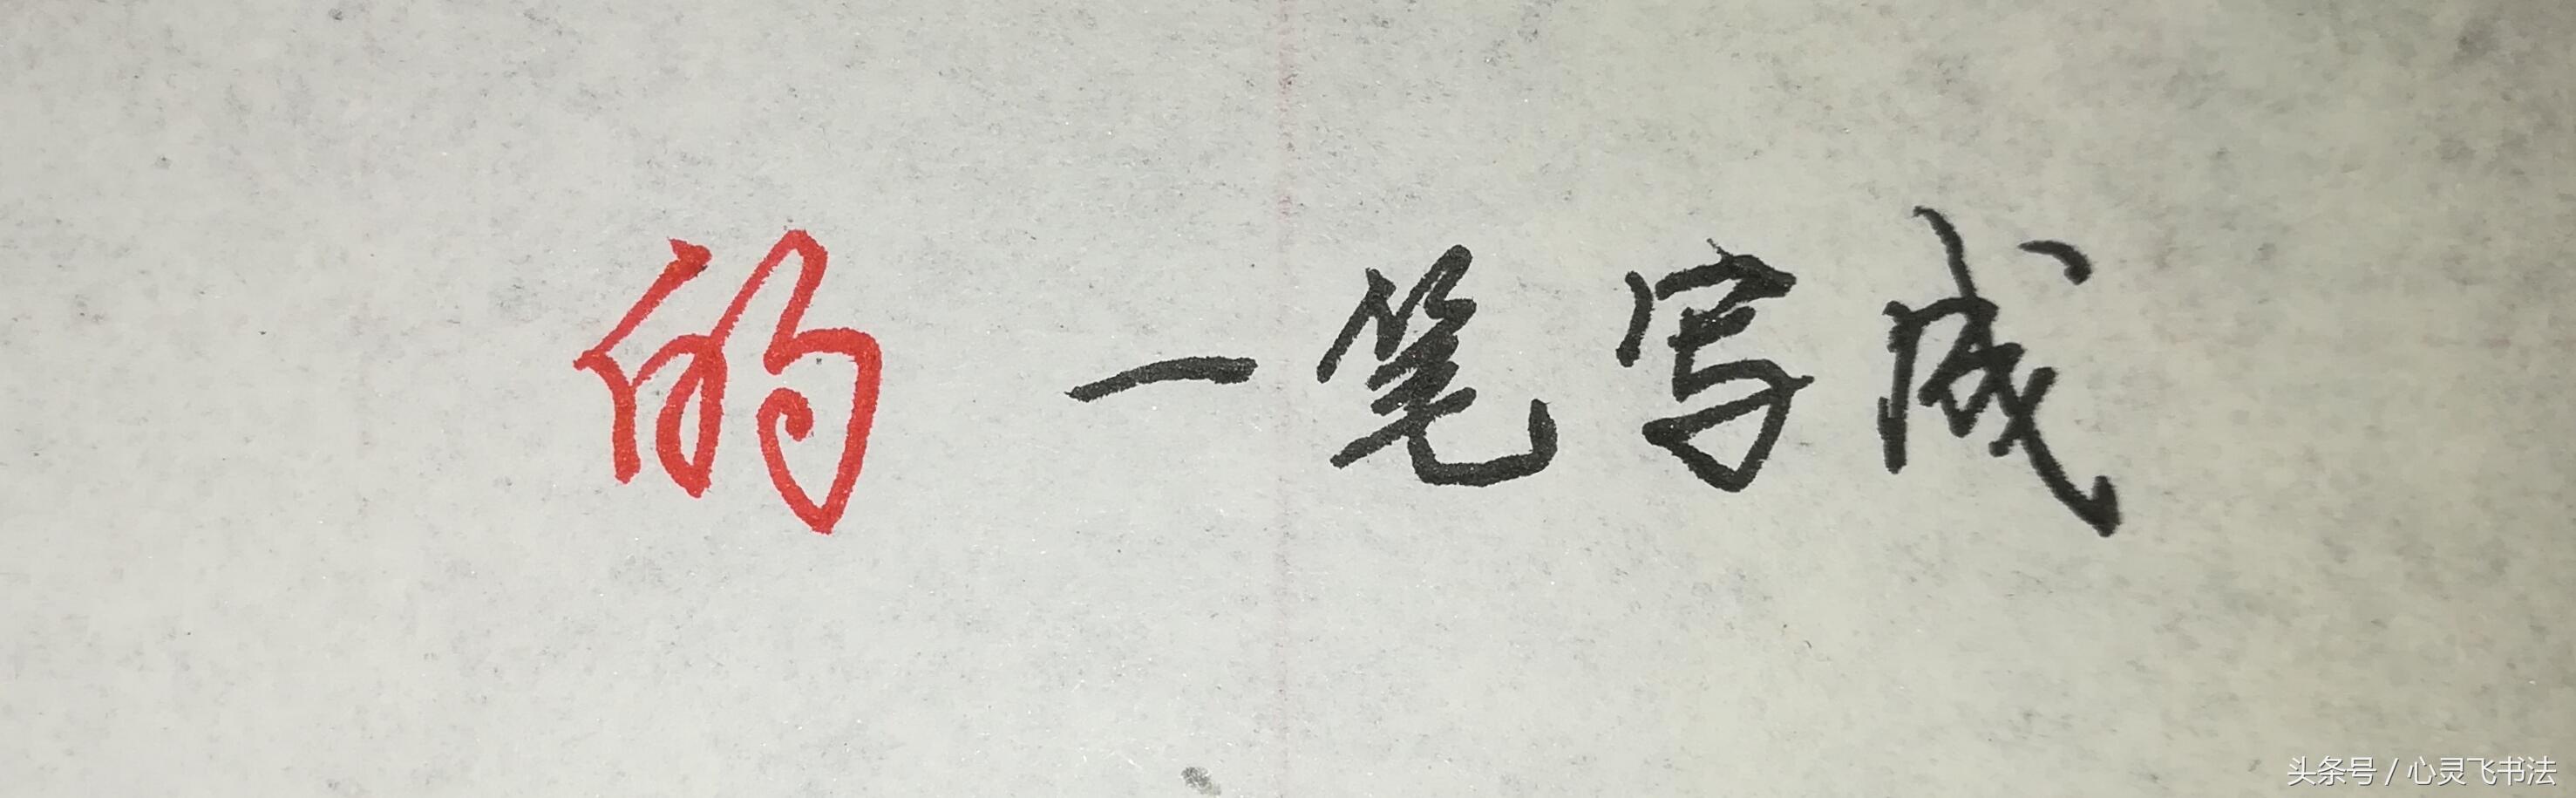 的一笔写成
头条号 / 心灵飞书法